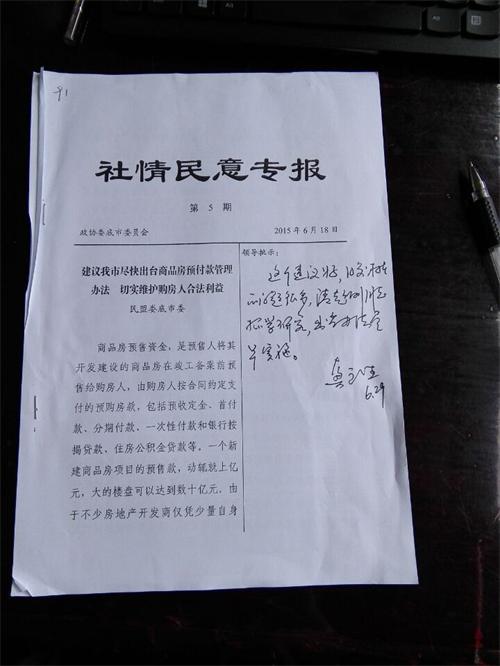 社情民意专报
第 5 期
政协娄底市委员会
2015年6月18日
建议我市尽快出台商品房预付款管理
办法 切实维护购房人合法利益
民盟娄底市委
商品房预售资金，是预售人将其
开发建设的商品房在竣工备案前预
售给购房人，由购房人按合同约定支
付的预购房款，包括预收定金、首付
款、分期付款、一次性付款和银行按
揭贷款、住房公积金贷款等。一个新
建商品房项目的预售款，动辄就上亿
元，大的楼盘可以达到数十亿元。由
于不少房地产开发商仅凭少量自身
领导批示：
这个建议好，
6.29